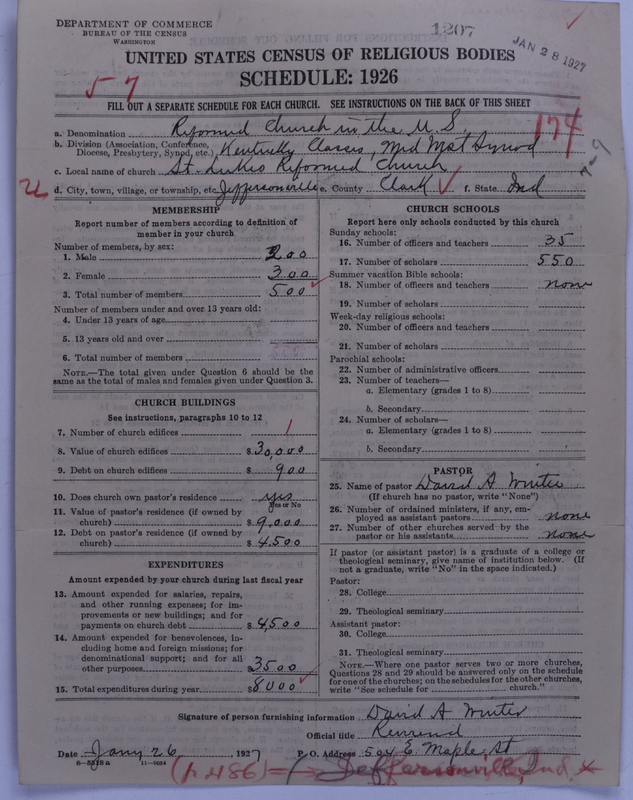 DEPARTMENT OF COMMERCE
BUREAU OF THE CENSUS
WASHINGTON
1207
JAN 28 1927
UNITED STATES CENSUS OF RELIGIOUS BODIES
SCHEDULE: 1926
57
FILL OUT A SEPARATE SCHEDULE FOR EACH CHURCH. SEE INSTRUCTIONS ON THE BACK OF THIS SHEET
174
a. Denomination Reformed Church in the U.S.
b. Division (Association, Conference, Diocese, Presbytery, Synod, etc.) Kentucky Classis, Mid West Synod
7-9
c. Local name of church St. Lukes Reformed Church
d. City, town, village, or township, etc. Jeffersonville e. County Clark f. State Ind
MEMBERSHIP
Report number of members according to definition of
member in your church
Number of members, by sex:
1. Male 200
2. Female 300
3. Total number of members 500
Number of members under and over 13 years old:
4. Under 13 years of age
5. 13 years old and over
6. Total number of members
NOTE.—The total given under Question 6 should be the
same as the total of males and females given under Question 3.
CHURCH BUILDINGS
See instructions, paragraphs 10 to 12
7. Number of church edifices 1
8. Value of church edifices $30,000
9. Debt on church edifices $ 900
10. Does church own pastor's residence yes
Yes or No
11. Value of pastor's residence (if owned by
church) $9,000
12. Debt on pastor's residence (if owned by
church) $4500
EXPENDITURES
Amount expended by your church during last fiscal year
13. Amount expended for salaries, repairs,
and other running expenses; for im-
provements or new buildings; and for
payments on church debt $4500
14. Amount expended for benevolences, in-
cluding home and foreign missions; for
denominational support; and for all
other purposes $3500
15. Total expenditures during year $8000
CHURCH SCHOOLS
Report here only schools conducted by this church
Sunday schools:
16. Number of officers and teachers 35
17. Number of scholars 550
Summer vacation Bible schools:
18. Number of officers and teachers none
19. Number of scholars
Week-day religious schools:
20. Number of officers and teachers
21. Number of scholars
Parochial schools:
22. Number of administrative officers
23. Number of teachers—
a. Elementary (grades 1 to 8)
b. Secondary
24. Number of scholars—
a. Elementary (grades 1 to 8)
b. Secondary
PASTOR
25. Name of pastor David A Winter
(If church has no pastor, write "None")
26. Number of ordained ministers, if any, em-
ployed as assistant pastors none
27. Number of other churches served by the
pastor or his assistants none
If pastor (or assistant pastor) is a graduate of a college or
theological seminary, give name of institution below. (If
not a graduate, write "No" in the space indicated.)
Pastor:
28. College
29. Theological seminary
Assistant pastor:
30. College
31. Theological seminary
NOTE.—Where one pastor serves two or more churches,
Questions 28 and 29 should be answered only on the schedule
for one of the churches; on the schedules for the other churches,
write "See schedule for church."
Signature of person furnishing information David A Winter
Official title Reverend
Date Jany 26 1927 P. O. Address 504 E. Maple St
8-5518a 11-9084
Jeffersonville, Ind.